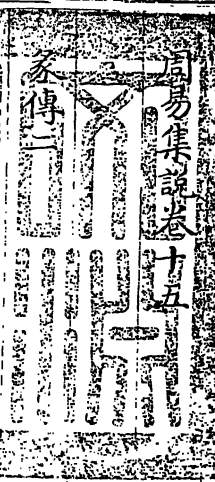 周易集說卷十五
彖傳二